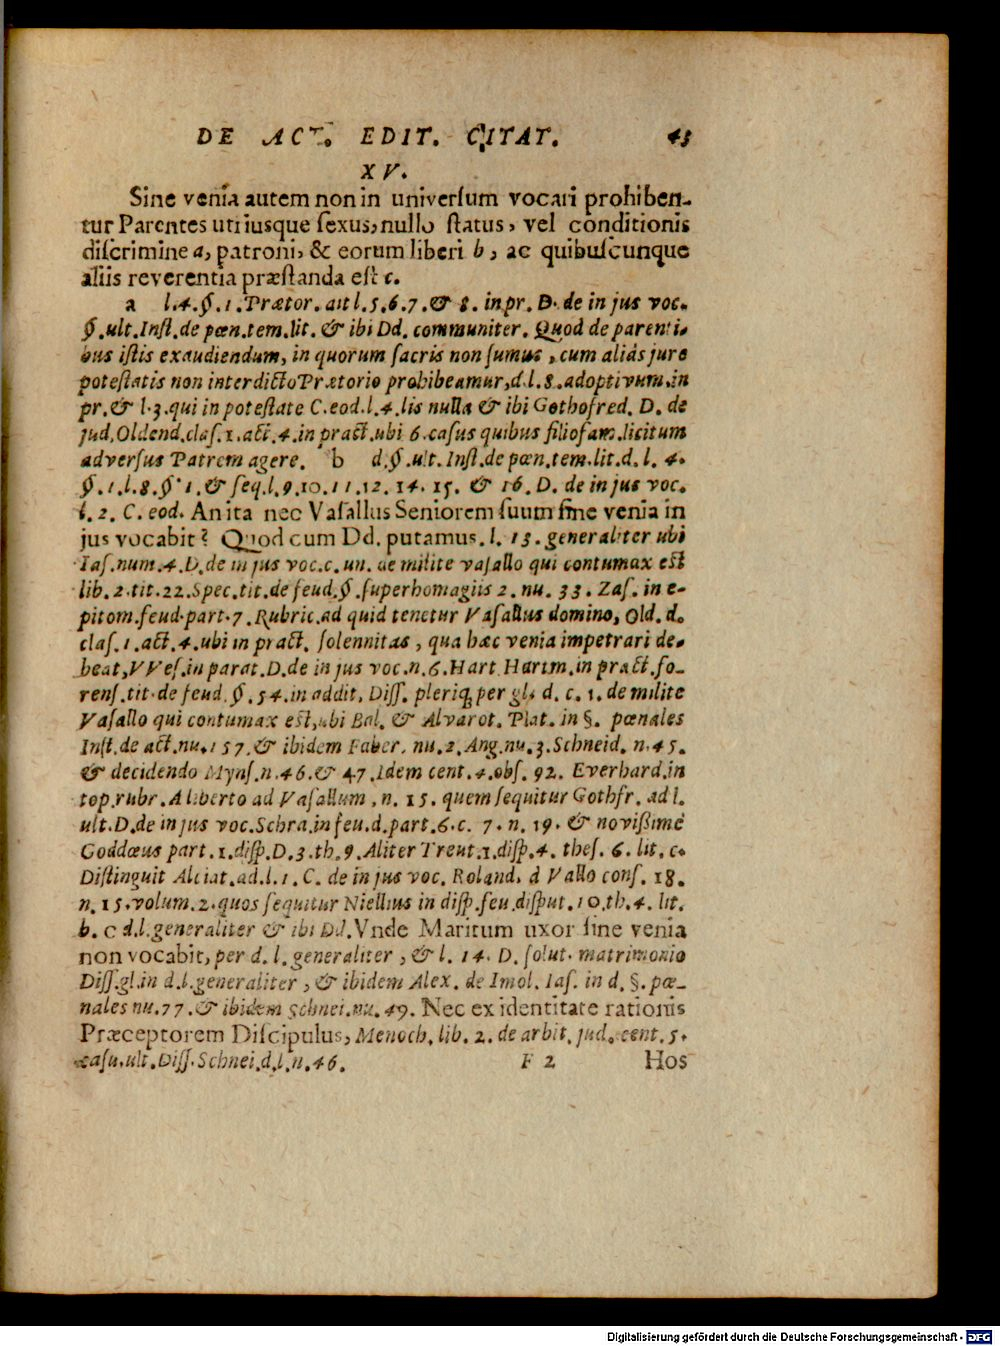 DE ACT. EDIT. CITAT. 43
XV.
Sine venia autem non in universum vocari prohiben-
tur Parentes utriusque sexus, nullo status, vel conditionis
discrimine a, patroni, & eorum liberi b, ac quibuscunque
aliis reverentia præstanda est c.
a l. 4. §. 1. Prætor. ait l. 5. 6. 7. & 8. in pr. D. de in jus voc.
§. ult. Inst. de pœn. tem. lit. & ibi Dd. communiter. Quod de parenti-
bus istis exaudiendum, in quorum sacris non sumus, cum aliàs jure
potestatis non interdicto Prætorio prohibeamur, d. l. 8. adoptivum. in
pr. & l. 3. qui in potestate C. eod. l. 4. lis nulla & ibi Gothofred. D. de
jud. Oldend. clas. 1. act. 4. in pract. ubi 6. casus quibus filiofam. licitum
adversus Patrem agere. b d. §. ult. Inst. de pœn. tem. lit. d. l. 4.
§. 1. l. 8. §. 1. & seq. l. 9. 10. 11. 12. 14. 15. & 16. D. de in jus voc.
l. 2. C. eod. An ita nec Vasallus Seniorem suum sine venia in
jus vocabit? Quod cum Dd. putamus. l. 13. generaliter ubi
Ias. num. 4. D. de in jus voc. c. un. de milite vasallo qui contumax est
lib. 2. tit. 22. Spec. tit. de feud. §. superhomagiis 2. nu. 33. Zas. in e-
pitom. feud. part. 7. Rubric. ad quid tenetur Vasallus domino, Old. d.
clas. 1. act. 4. ubi in pract. solennitas, qua hæc venia impetrari de-
beat, VVes. in parat. D. de in jus voc. n. 6. Hart. Hartm. in pract. fo-
rens. tit. de feud. §. 54. in addit. Diss. pleriq; per gl. d. c. 1. de milite
Vasallo qui contumax est, ubi Bal. & Alvarot. Plat. in §. pœnales
Inst. de act. nu. 157. & ibidem Faber. nu. 2. Ang. nu. 3. Schneid. n. 45.
& decidendo Myns. n. 46. & 47. Idem cent. 4. obs. 92. Everhard. in
top. rubr. A liberto ad Vasallum, n. 15. quem sequitur Gothfr. ad l.
ult. D. de in jus voc. Schra. in feu. d. part. 6. c. 7. n. 19. & novißimè
Goddœus part. 1. disp. D. 3. th. 9. Aliter Treut. 1. disp. 4. thes. 6. lit. c.
Distinguit Alciat. ad. l. 1. C. de in jus voc. Roland. à Vallo cons. 18.
n. 15. volum. 2. quos sequitur Niellius in disp. feu. disput. 10. th. 4. lit.
b. c d. l. generaliter & ibi Dd. Vnde Maritum uxor sine venia
non vocabit, per d. l. generaliter, & l. 14. D. solut. matrimonio
Diss. gl. in d. l. generaliter, & ibidem Alex. de Imol. Ias. in d. §. pœ-
nales nu. 77. & ibidem schnei. nu. 49. Nec ex identitate rationis
Præceptorem Discipulus, Menoch. lib. 2. de arbit. jud. cent. 5.
casu. ult. Diss. Schnei. d. l. n. 46. F 2 Hos
Digitalisierung gefördert durch die Deutsche Forschungsgemeinschaft - DFG